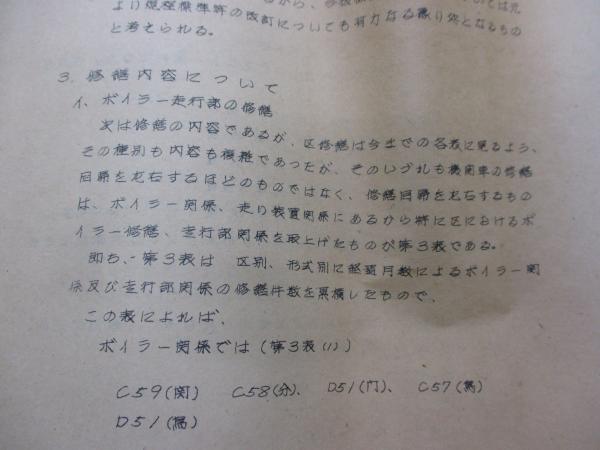 より規程標準等の改訂についても有力なる拠り処となるもの
と考えられる。
3. 修繕内容について
イ、ボイラー走行部の修繕
次は修繕の内容であるが、区修繕は今までの各表に見るよう、
その種別も内容も複雑であったが、そのいづれも機関車の修繕
回帰を左右するほどのものではなく、修繕回帰を左右するもの
は、ボイラー関係、走り装置関係にあるから特に区におけるボ
イラー修繕、走行部関係を取上げたものが第3表である。
即ち、第3表は 区別、形式別に経過月数によるボイラー関
係及び走行部関係の修繕件数を累積したもので、
この表によれば、
ボイラー関係では(第3表(1))
C59(関) C58(分)、 D51(門)、 C57(鳥)
D51(鳥)